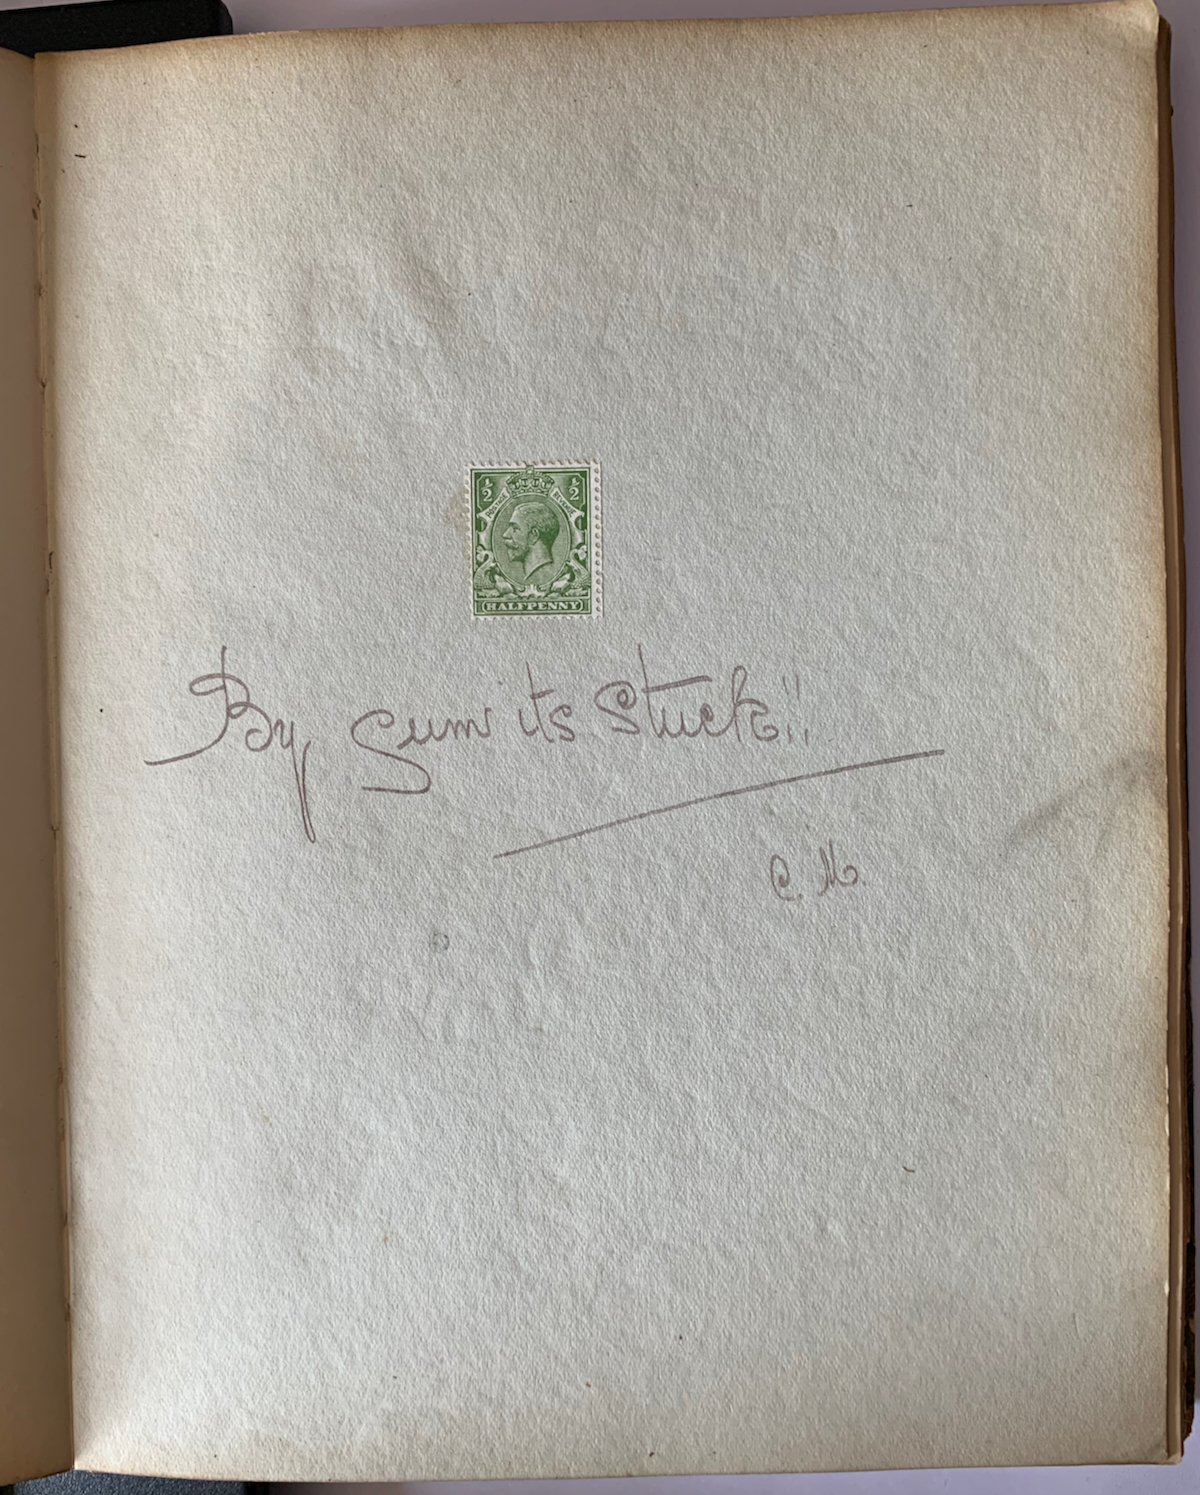 ½ ½
POSTAGE REVENUE
HALFPENNY
By Gum its Stuck!!
C. M.